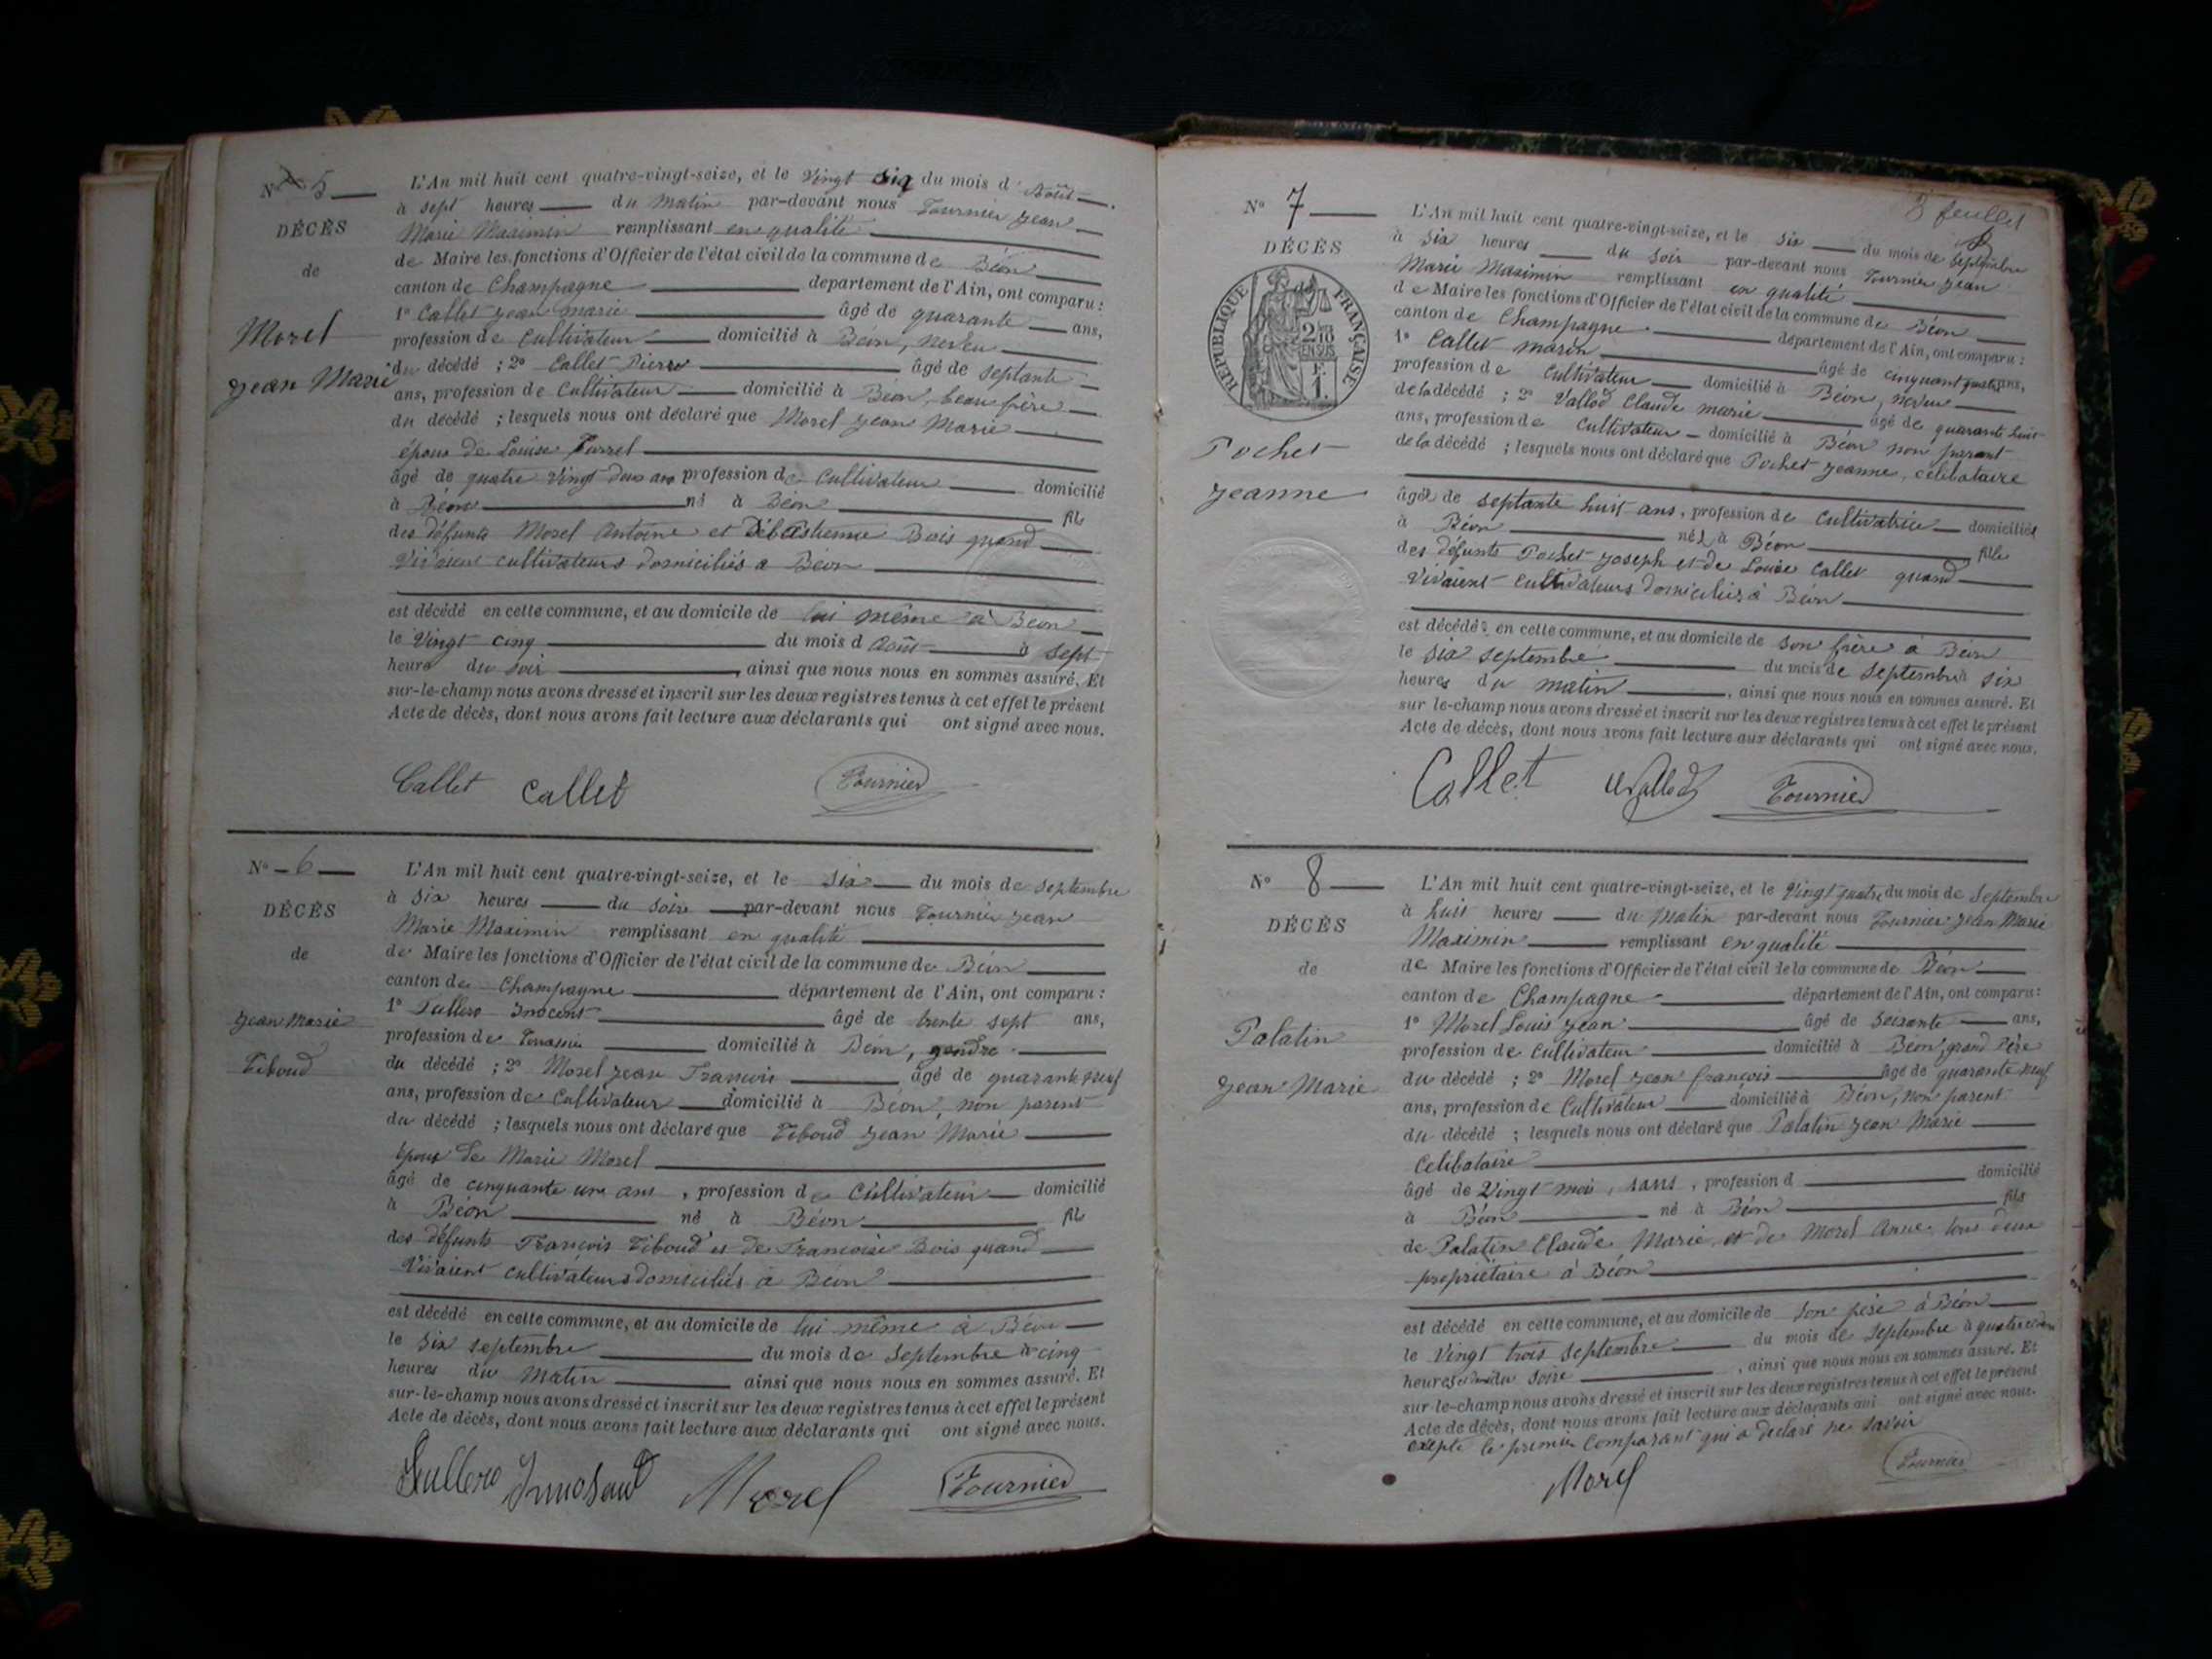 N° 5
DÉCÈS
de
Morel
Jean Marie
L'An mil huit cent quatre-vingt-seize, et le Vingt Six du mois d'Août
à sept heures du matin par-devant nous Tournier Jean
Marie Maximin remplissant en qualité
de Maire les fonctions d'Officier de l'état civil de la commune de Béon
canton de Champagne département de l'Ain, ont comparu :
1° Callet Jean marie âgé de quarante ans,
profession de Cultivateur domicilié à Béon, neveu
du décédé ; 2° Callet Pierre âgé de septante
ans, profession de Cultivateur domicilié à Béon, beau frère
du décédé ; lesquels nous ont déclaré que Morel Jean Marie
époux de Louise
âgé de quatre vingt deux ans profession de Cultivateur domicilié
à Béon né à Béon fils
des défunts Morel Antoine et Bois quand
Vivaient cultivateurs domiciliés a Béon
est décédé en cette commune, et au domicile de lui même à Béon
le Vingt cinq du mois d Août à sept
heure du soir, ainsi que nous nous en sommes assuré. Et
sur-le-champ nous avons dressé et inscrit sur les deux registres tenus à cet effet le présent
Acte de décès, dont nous avons fait lecture aux déclarants qui ont signé avec nous.
Callet Callet Tournier
N° 6
DÉCÈS
de
Jean Marie
Tiboud
L'An mil huit cent quatre-vingt-seize, et le Six du mois de septembre
à six heures du soir par-devant nous Tournier Jean
Marie Maximin remplissant en qualité
de Maire les fonctions d'Officier de l'état civil de la commune de Béon
canton de Champagne département de l'Ain, ont comparu :
1° âgé de trente sept ans,
profession de domicilié à Beon, gendre
du décédé ; 2° Morel Jean François âgé de quarante neuf
ans, profession de Cultivateur domicilié à Béon, non parent
du décédé ; lesquels nous ont déclaré que Tiboud Jean Marie
époux de Marie Morel
âgé de cinquante un ans, profession de Cultivateur domicilié
à Béon né à Béon fils
des défunts François Tiboud et de Françoise Bois quand
Vivaient cultivateurs domiciliés à Béon
est décédé en cette commune, et au domicile de lui même à Béon
le Six septembre du mois de Septembre à cinq
heures du Matin ainsi que nous nous en sommes assuré. Et
sur-le-champ nous avons dressé et inscrit sur les deux registres tenus à cet effet le présent
Acte de décès, dont nous avons fait lecture aux déclarants qui ont signé avec nous.
Morel Tournier
3 feuillet
N° 7
DÉCÈS
RÉPUBLIQUE FRANÇAISE
Pochet
Jeanne
L'An mil huit cent quatre-vingt-seize, et le six du mois de Septembre
à Six heures du Soir par-devant nous Tournier Jean
Marie Maximin remplissant en qualité
de Maire les fonctions d'Officier de l'état civil de la commune de Béon
canton de Champagne département de l'Ain, ont comparu :
1° Callet marin âgé de cinquant quatre ans,
profession de Cultivateur domicilié à Béon, neveu
de la décédé ; 2° Vallod Claude marie âgé de quarante huit
ans, profession de Cultivateur domicilié à Béon non parent
de la décédé ; lesquels nous ont déclaré que Pochet Jeanne, célibataire
âgée de septante huit ans, profession de Cultivatrice domiciliée
à Béon née à Béon fille
des défunts Pochet Joseph et de Louise Callet quand
vivaient cultivateurs domiciliés à Béon
est décédée en cette commune, et au domicile de son frère à Béon
le six septembre du mois de septembre à six
heures du matin, ainsi que nous nous en sommes assuré. Et
sur le-champ nous avons dressé et inscrit sur les deux registres tenus à cet effet le présent
Acte de décès, dont nous avons fait lecture aux déclarants qui ont signé avec nous.
Callet Tournier
N° 8
DÉCÈS
de
Palatin
Jean Marie
L'An mil huit cent quatre-vingt-seize, et le Vingt quatre du mois de Septembre
à huit heures du Matin par-devant nous Tournier Jean Marie
Maximin remplissant en qualité
de Maire les fonctions d'Officier de l'état civil de la commune de Béon
canton de Champagne département de l'Ain, ont comparu :
1° Morel Louis Jean âgé de soixante ans,
profession de Cultivateur domicilié à Béon, grand Père
du décédé ; 2° Morel Jean françois âgé de quarante neuf
ans, profession de Cultivateur domicilié à Béon, non parent
du décédé ; lesquels nous ont déclaré que Palatin Jean Marie
Celibataire
âgé de Vingt mois, sans, profession d domicilié
à Béon né à Béon fils
de Palatin Claude Marie et de Morel Anne tous deux
propriétaire à Béon
est décédé en cette commune, et au domicile de son père à Béon
le Vingt trois Septembre du mois de Septembre à quatre
heures du soire, ainsi que nous nous en sommes assuré. Et
sur-le-champ nous avons dressé et inscrit sur les deux registres tenus à cet effet le présent
Acte de décès, dont nous avons fait lecture aux déclarants qui ont signé avec nous.
exepté le premier Comparant qui a declaré ne savoir
Morel Tournier